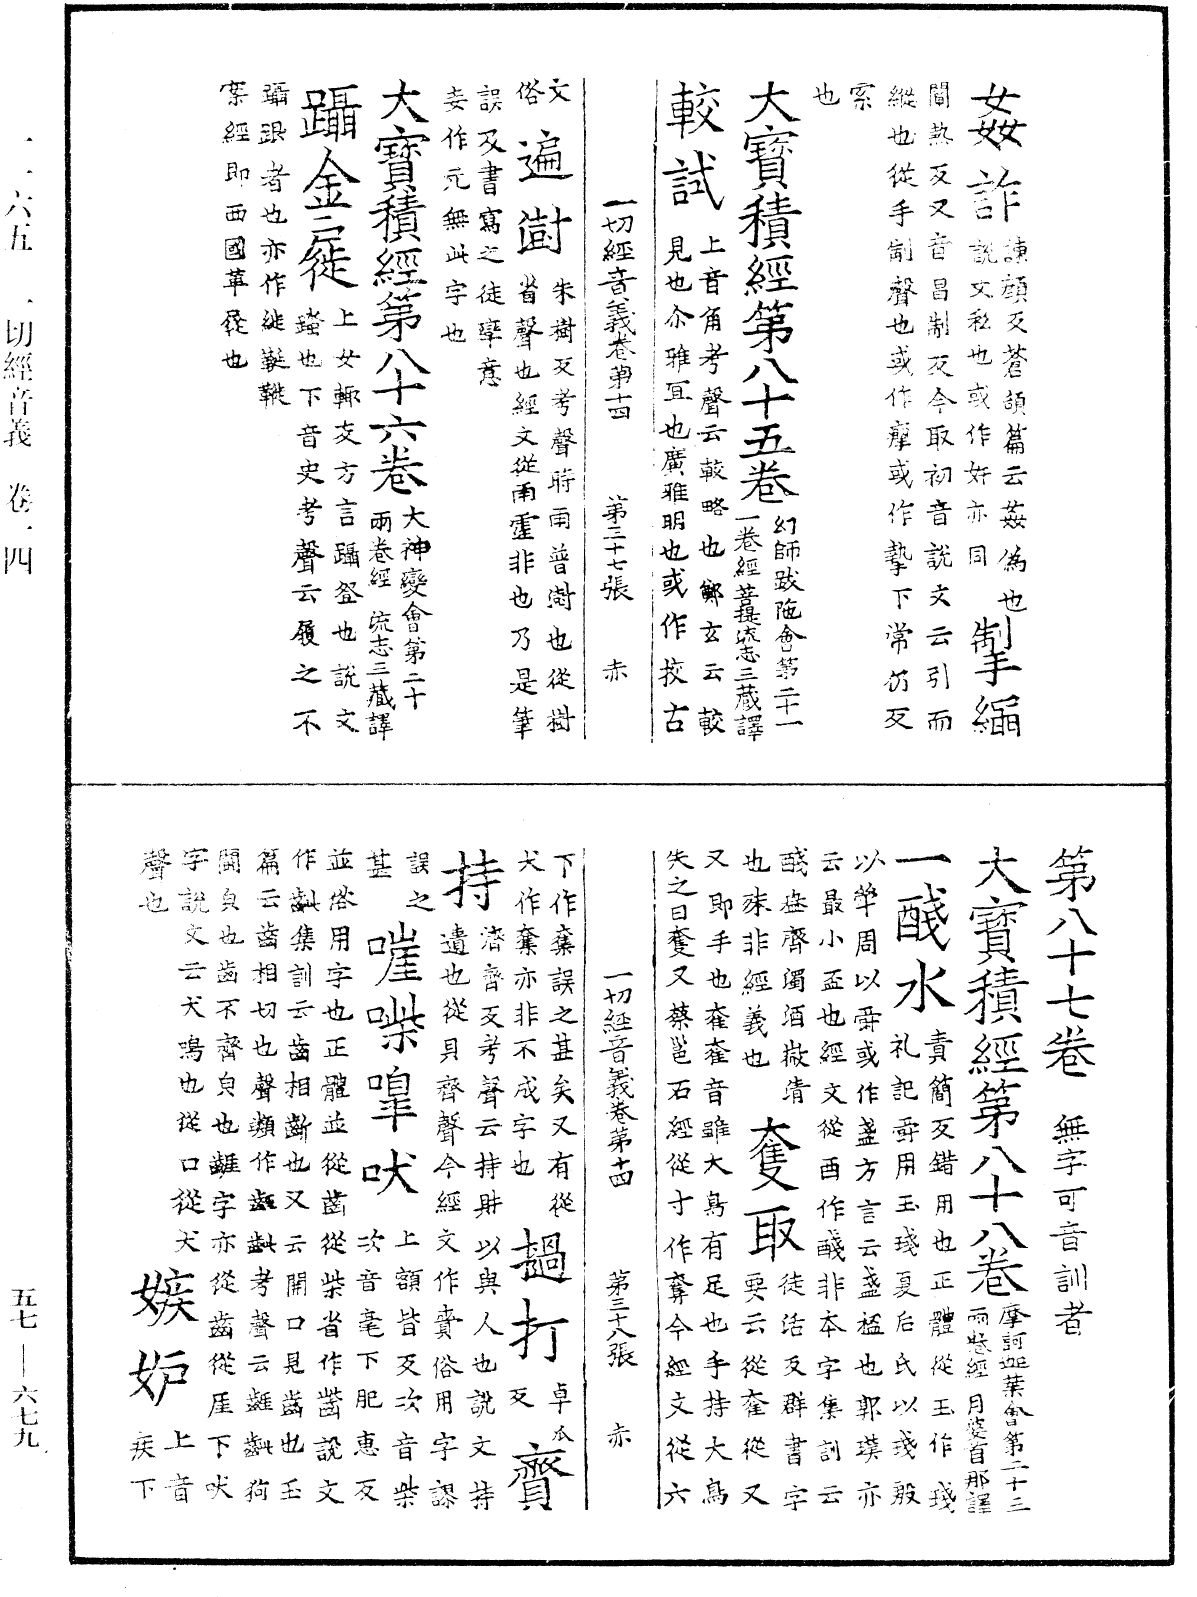 姦詐 諫顔反蒼頡篇云姦偽也
說文私也或作奸亦同 掣繩
闡熱反又音昌制反今取初音說文云引而
縱也從手制聲也或作𤸪或作摯下常仍反
索
也
大寶積經第八十五卷 幻師跋陁會第二十一
一卷經菩提流志三藏譯
較試 上音角考聲云較略也鄭玄云較
見也尒雅冝也廣雅明也或作挍古
一切經音義卷第十四 第三十七張 赤
文
俗 遍澍 朱樹反考聲時雨普澍也從樹
省聲也經文從雨霔非也乃是筆
誤及書寫之徒率意
妄作元無此字也
大寶積經第八十六卷 大神變會第二十
兩卷經 流志三藏譯
躡金屣 上女輒反方言躡登也說文
蹈也下音史考聲云履之不
躡跟者也亦作縰鞋鞿
案經即西國革屣也
第八十七卷 無字可音訓者
大寶積經第八十八卷 摩訶迦葉會第二十三
兩卷經 月婆首那譯
一醆水 責簡反錯用也正體從玉作琖
礼記爵用玉琖夏后氏以琖殷
以斚周以爵或作盞方言云盞㮎也郭璞亦
云最小盃也經文從酉作醆非本字集訓云
醆盎齊濁酒微清 奪取 徒活反群書字
也殊非經義也 要云從奞從又
又即手也奞奞音雖大鳥有足也手持大鳥
失之曰奪又蔡邕石經從寸作奪今經文從六
一切經音義卷第十四 第三十八張 赤
下作棄誤之甚矣又有從
犬作棄亦非不成字也 撾打 卓瓜
反 齎
持 濟齊反考聲云持財以與人也說文持
遺也從貝齊聲今經文作賫俗用字謬
誤之
甚 啀喍嘷吠 上額皆反次音柴
次音毫下肥惠反
並俗用字也正體並從齒從柴省作𪘬說文
作齜集訓云齒相齗也又云開口見齒也玉
篇云齒相切也聲類作齜考聲云齜狗
鬪皃也齒不齊皃也齜字亦從齒從厓下吠
字說文云犬鳴也從口從犬 嫉妒 上音
疾下
聲也
一一六五 一切經音義 卷一四
五七—六七九